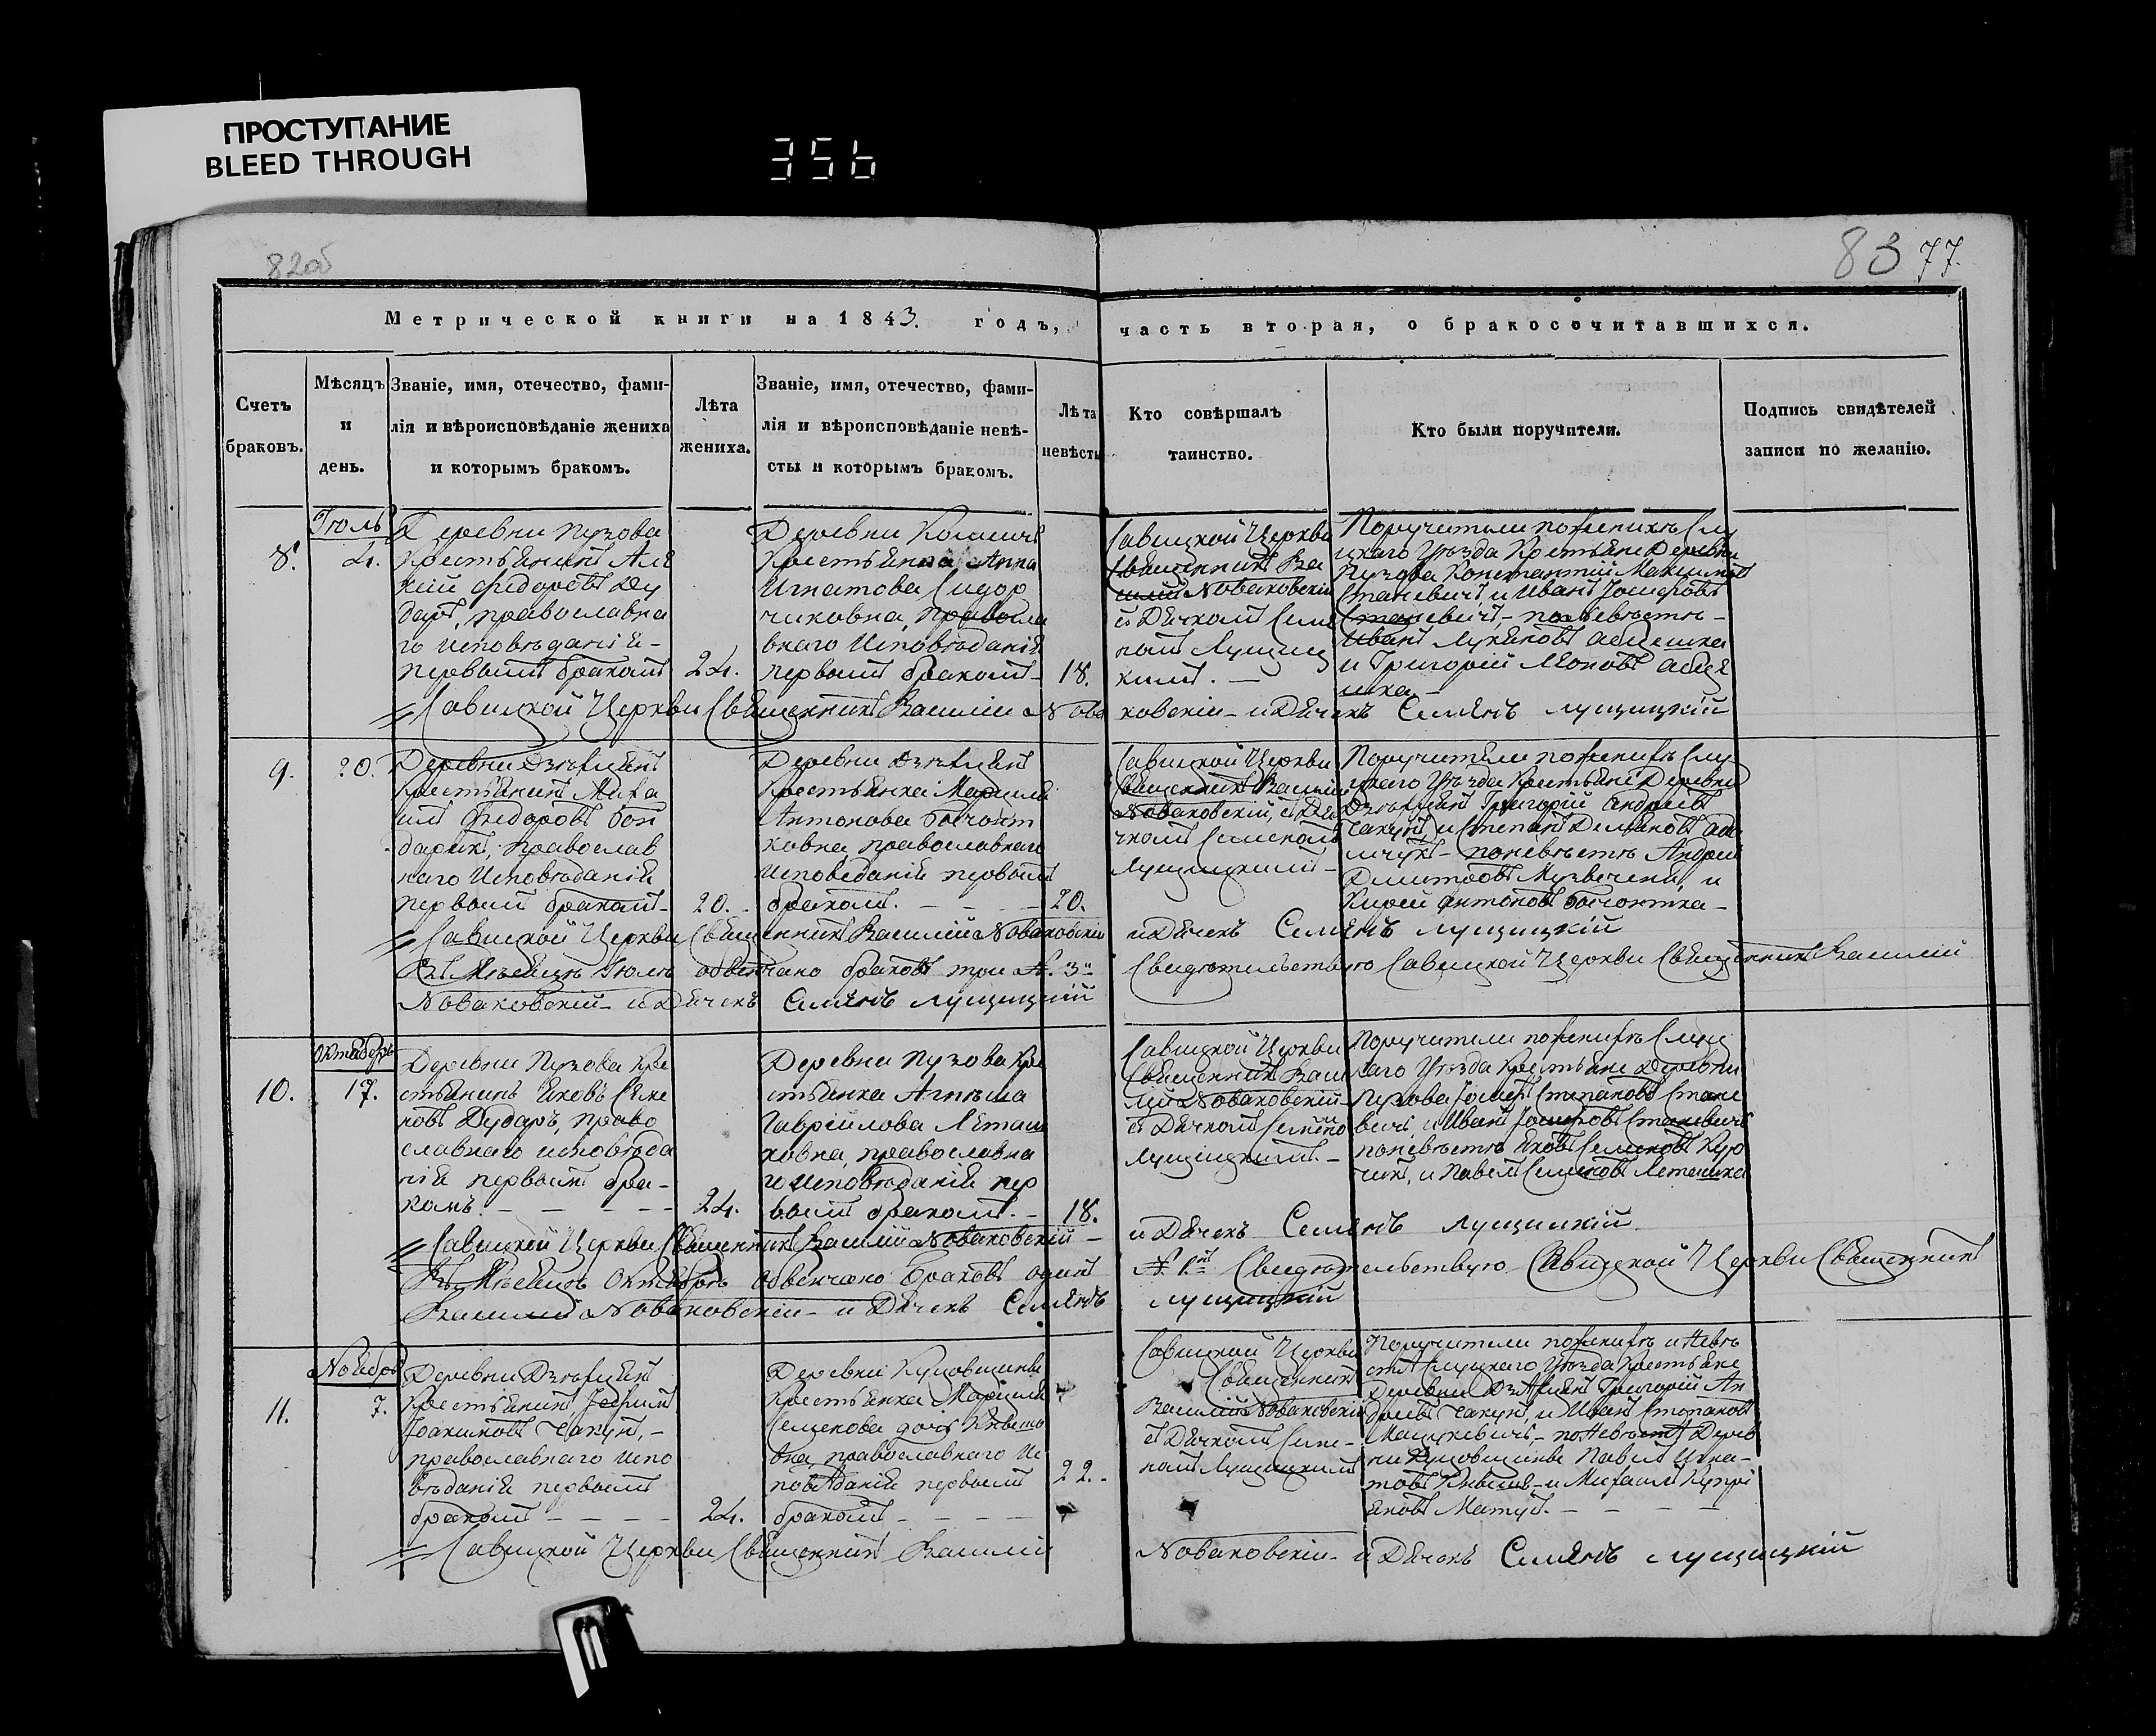 ПРОСТУПАНИЕ
BLEED THROUGH
356
82об
83 77.
Метрической книги на 1843. годъ, часть вторая, о бракосочитавшихся.
Счетъ браковъ.
Мѣсяцъ и день.
Званіе, имя, отечество, фами-
лія и вѣроисповѣданіе жениха
и которымъ бракомъ.
Лѣта жениха.
Званіе, имя, отечество, фами-
лія и вѣроисповѣданіе невѣ-
сты и которымъ бракомъ.
Лѣта невѣсты
Кто совѣршалъ
таинство.
Кто были поручители.
Подпись свидѣтелей
записи по желанію.
8.
Іюль
4.
Деревни Пузова
Крестьянинъ Але
ксій Ѳедоровъ Ду
даръ, православна
го исповѣданія -
первымъ бракомъ
24.
Деревни
Крестьянка Анна
Игнатова Сидор
чиковна, правосла
внаго Исповѣданія
первымъ бракомъ -
18.
Савицкой Церкви
Священникъ Ва
силій Новаковскій
съ Дячкомъ Семе
номъ Лущиц
кимъ. -
Поручители поженихѣ Слу
цкаго Уѣзда Крестьяне Деревни
Пузова Константій Максимовъ
Станевичъ и Иванъ Іосифовъ
Станевичъ, - поневѣстѣ -
Иванъ Лукьяновъ
и Григорій Леоновъ
Савицкой Церкви Священникъ Василій Нова
ковскій - и Дячекъ Семенъ Лущицкій
9.
20.
Деревни
Крестьянинъ Миха
илъ Ѳедоровъ Бон
дарикъ, православ
наго Исповѣданія
первымъ бракомъ -
20.
Деревни
Крестьянка
Антонова
ковна православнаго
Исповеданія первымъ
бракомъ. -
20.
Савицкой Церкви
Священникъ Василій
Новаковскій, съ Дя
чкомъ Семеномъ
Лущицкимъ -
Поручители поженихѣ Слу
цкаго Уѣзда Крестьяне Деревни
Григорій Андреевъ
Чакунъ, и Степанъ Демьяновъ
- поневѣстѣ Андрей
Дмитровъ и
Антоновъ
Савицкой Церкви Священникъ Василій Новаковскій
и Дячекъ Семенъ Лущицкій
Въ Мѣсяцѣ Іюлѣ обвенчано браковъ три №. 3
Свидѣтельствую Савицкой Церкви Священникъ Василій
Новаковскій - и Дячекъ Семенъ Лущицкій
10.
Октябрь
17.
Деревни Пузова Кре
стьянинъ Яковъ Семе
новъ Дударъ, право
славнаго исповѣда
нія первымъ бра-
комъ. -
24.
Деревни Пузова Кре
стьянка Агнѣша
Гавріилова Леташ
ковна, православна
го исповѣданія пер
вымъ бракомъ. -
18.
Савицкой Церкви
Священникъ Васи
лій Новаковскій -
съ Дячкомъ Семено
Лущицкимъ. -
Поручители поженихѣ Слуц
каго Уѣзда Крестьяне Деревни
Пузова Іосифъ Степановъ Стане
вичъ и Иванъ Іосифовъ Станевичъ
поневѣстѣ Яковъ Семеновъ
и Павелъ Семеновъ Леташка
Савицкой Церкви Священникъ Василій Новаковскій -
и Дячекъ Семенъ Лущицкій
Въ Мѣсяцѣ Октябрѣ обвенчано браковъ одинъ
№. 1. Свидѣтельствую Савицкой Церкви Священникъ
Василій Новаковскій - и Дячекъ Семенъ
Лущицкій
11.
Ноябрь
7.
Деревни
Крестьянинъ
Іоакимовъ Чакунъ, -
православнаго испо
вѣданія первымъ
бракомъ -
24.
Деревни
Крестьянка
Семенова дочь
православнаго Ис
повѣданія первымъ
бракомъ -
22. -
Савицкой Церкви
Священникъ
Василій Новаковскій
съ Дячкомъ Семе-
номъ Лущицкимъ
Поручители поженихѣ и невѣ
стѣ Слуцкаго Уѣзда Крестьяне
Деревни Григорій Ан
дреевъ Чакунъ, и Иванъ Степановъ
Мацукевичъ, - поневѣстѣ Дерев
ни Павелъ Игна-
товъ и Михаилъ Купрі
яновъ Матус. -
Савицкой Церкви Священникъ Василій
Новаковскій - и Дячекъ Семенъ Лущицкій